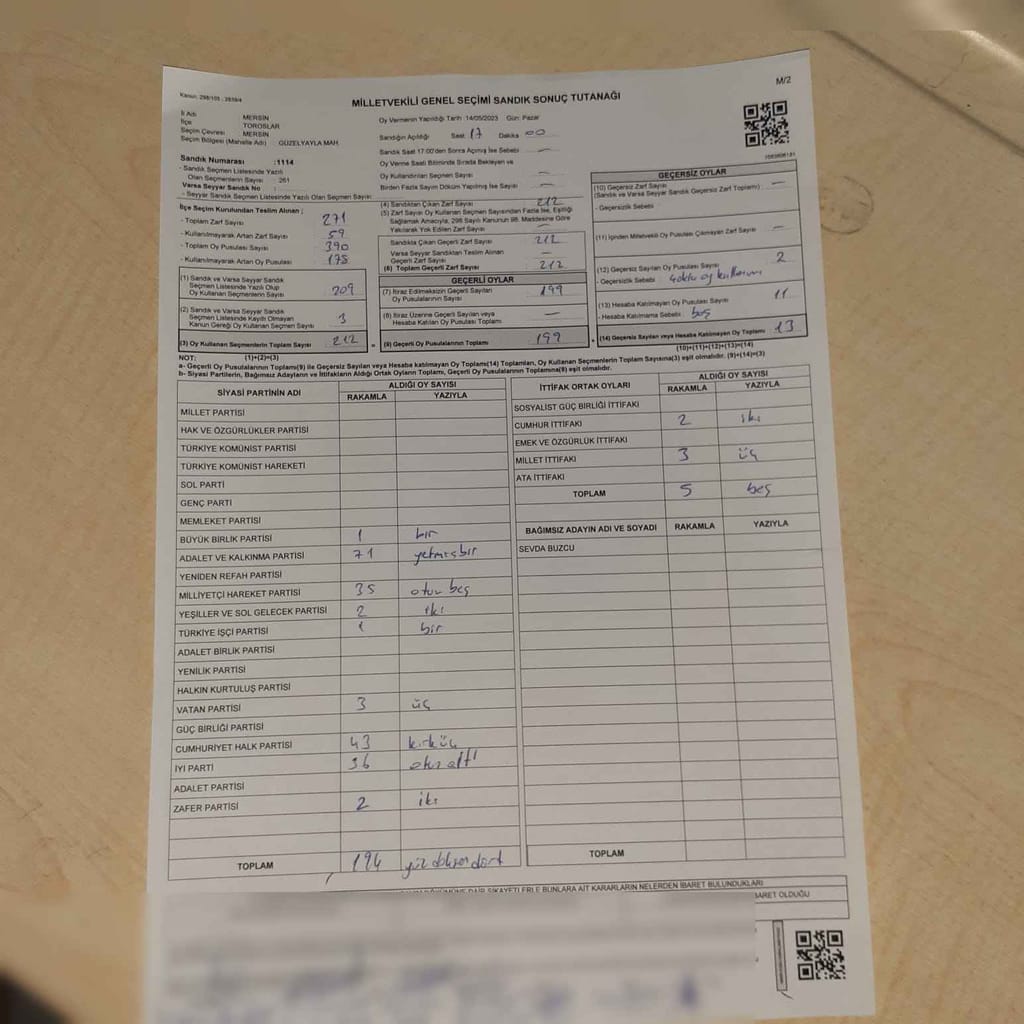 M/2
Kanun: 298/105 - 2839/4
MİLLETVEKİLİ GENEL SEÇİMİ SANDIK SONUÇ TUTANAĞI
İl Adı : MERSİN
İlçe : TOROSLAR
Seçim Çevresi : MERSİN
Seçim Bölgesi (Mahalle Adı) : GÜZELYAYLA MAH.
Sandık Numarası :1114
- Sandık Seçmen Listesinde Yazılı
Olan Seçmenlerin Sayısı : 261
Varsa Seyyar Sandık No :
- Seyyar Sandık Seçmen Listesinde Yazılı Olan Seçmen Sayısı:
İlçe Seçim Kurulundan Teslim Alınan ;
- Toplam Zarf Sayısı 271
- Kullanılmayarak Artan Zarf Sayısı 59
- Toplam Oy Pusulası Sayısı 390
- Kullanılmayarak Artan Oy Pusulası 175
(1) Sandık ve Varsa Seyyar Sandık
Seçmen Listesinde Yazılı Olup
Oy Kullanan Seçmenlerin Sayısı 209
(2) Sandık ve Varsa Seyyar Sandık
Seçmen Listesinde Kayıtlı Olmayan
Kanun Gereği Oy Kullanan Seçmen Sayısı 3
(3) Oy Kullanan Seçmenlerin Toplam Sayısı 212
(1)+(2)=(3)
Oy Vermenin Yapıldığı Tarih :14/05/2023 Gün: Pazar
Sandığın Açıldığı Saat 17 Dakika 00
Sandık Saat 17:00'den Sonra Açılmış İse Sebebi —
Oy Verme Saati Bitiminde Sırada Bekleyen ve
Oy Kullandırılan Seçmen Sayısı —
Birden Fazla Sayım Döküm Yapılmış İse Sayısı —
(4) Sandıktan Çıkan Zarf Sayısı 212
(5) Zarf Sayısı Oy Kullanan Seçmen Sayısından Fazla İse, Eşitliği
Sağlamak Amacıyla, 298 Sayılı Kanunun 98. Maddesine Göre
Yakılarak Yok Edilen Zarf Sayısı —
Sandıkta Çıkan Geçerli Zarf Sayısı 212
Varsa Seyyar Sandıktan Teslim Alınan
Geçerli Zarf Sayısı —
(6) Toplam Geçerli Zarf Sayısı 212
GEÇERLİ OYLAR
(7) İtiraz Edilmeksizin Geçerli Sayılan
Oy Pusulalarının Sayısı 199
(8) İtiraz Üzerine Geçerli Sayılan veya
Hesaba Katılan Oy Pusulası Toplamı —
(9) Geçerli Oy Pusulalarının Toplamı 199
GEÇERSİZ OYLAR
(10) Geçersiz Zarf Sayısı
(Sandık ve Varsa Seyyar Sandık Geçersiz Zarf Toplamı) —
- Geçersizlik Sebebi
(11) İçinden Milletvekili Oy Pusulası Çıkmayan Zarf Sayısı —
(12) Geçersiz Sayılan Oy Pusulası Sayısı 2
- Geçersizlik Sebebi Çoklu oy kullanım
(13) Hesaba Katılmayan Oy Pusulası Sayısı 11
- Hesaba Katılmama Sebebi boş
(14) Geçersiz Sayılan veya Hesaba Katılmayan Oy Toplamı 13
(10)+(11)+(12)+(13)=(14)
NOT:
a- Geçerli Oy Pusulalarının Toplamı(9) ile Geçersiz Sayılan veya Hesaba katılmayan Oy Toplamı(14) Toplamları, Oy Kullanan Seçmenlerin Toplam Sayısına(3) eşit olmalıdır. (9)+(14)=(3)
b- Siyasi Partilerin, Bağımsız Adayların ve İttifakların Aldığı Ortak Oyların Toplamı, Geçerli Oy Pusulalarının Toplamına(9) eşit olmalıdır.
SİYASİ PARTİNİN ADI ALDIĞI OY SAYISI
RAKAMLA YAZIYLA
MİLLET PARTİSİ
HAK VE ÖZGÜRLÜKLER PARTİSİ
TÜRKİYE KOMÜNİST PARTİSİ
TÜRKİYE KOMÜNİST HAREKETİ
SOL PARTİ
GENÇ PARTİ
MEMLEKET PARTİSİ
BÜYÜK BİRLİK PARTİSİ 1 bir
ADALET VE KALKINMA PARTİSİ 71 yetmişbir
YENİDEN REFAH PARTİSİ
MİLLİYETÇİ HAREKET PARTİSİ 35 otuz beş
YEŞİLLER VE SOL GELECEK PARTİSİ 2 iki
TÜRKİYE İŞÇİ PARTİSİ 1 bir
ADALET BİRLİK PARTİSİ
YENİLİK PARTİSİ
HALKIN KURTULUŞ PARTİSİ
VATAN PARTİSİ 3 üç
GÜÇ BİRLİĞİ PARTİSİ
CUMHURİYET HALK PARTİSİ 43 kırküç
İYİ PARTİ 36 otuz altı
ADALET PARTİSİ
ZAFER PARTİSİ 2 iki
TOPLAM 194 yüz doksan dört
İTTİFAK ORTAK OYLARI ALDIĞI OY SAYISI
RAKAMLA YAZIYLA
SOSYALİST GÜÇ BİRLİĞİ İTTİFAKI
CUMHUR İTTİFAKI 2 iki
EMEK VE ÖZGÜRLÜK İTTİFAKI
MİLLET İTTİFAKI 3 üç
ATA İTTİFAKI
TOPLAM 5 beş
BAĞIMSIZ ADAYIN ADI VE SOYADI RAKAMLA YAZIYLA
SEVDA BUZCU
TOPLAM
DÖKÜMÜNE DAİR ŞİKAYETLERLE BUNLARA AİT KARARLARIN NELERDEN İBARET BULUNDUKLARI
İBARET OLDUĞU